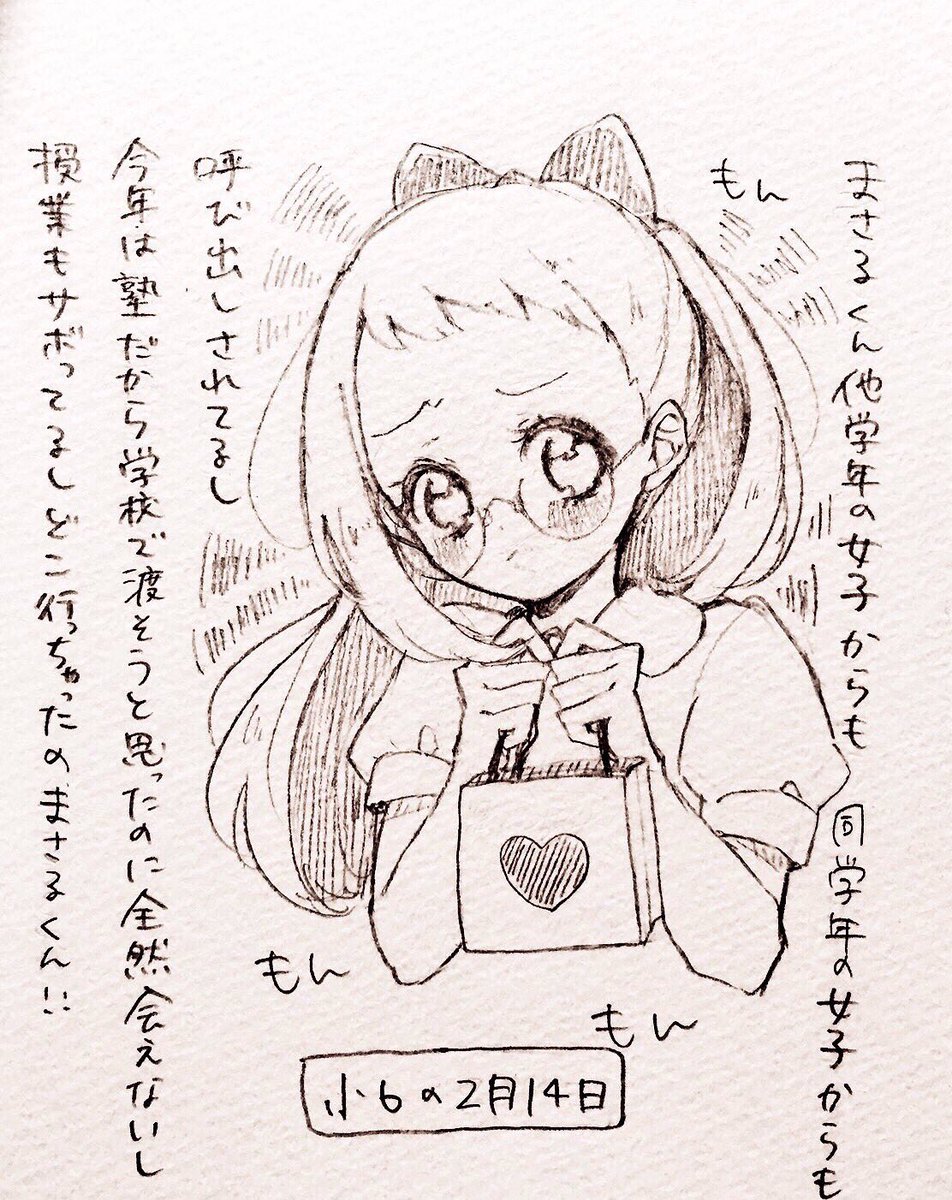 まさるくん他学年の女子からも
同学年の女子からも
もん
呼び出しされてるし
今年は塾だから学校で渡そうと思ったのに全然会えないし
損業もサボってるしどこ行っちゃったのまさるくん!!
もん
もん
小6の2月14日